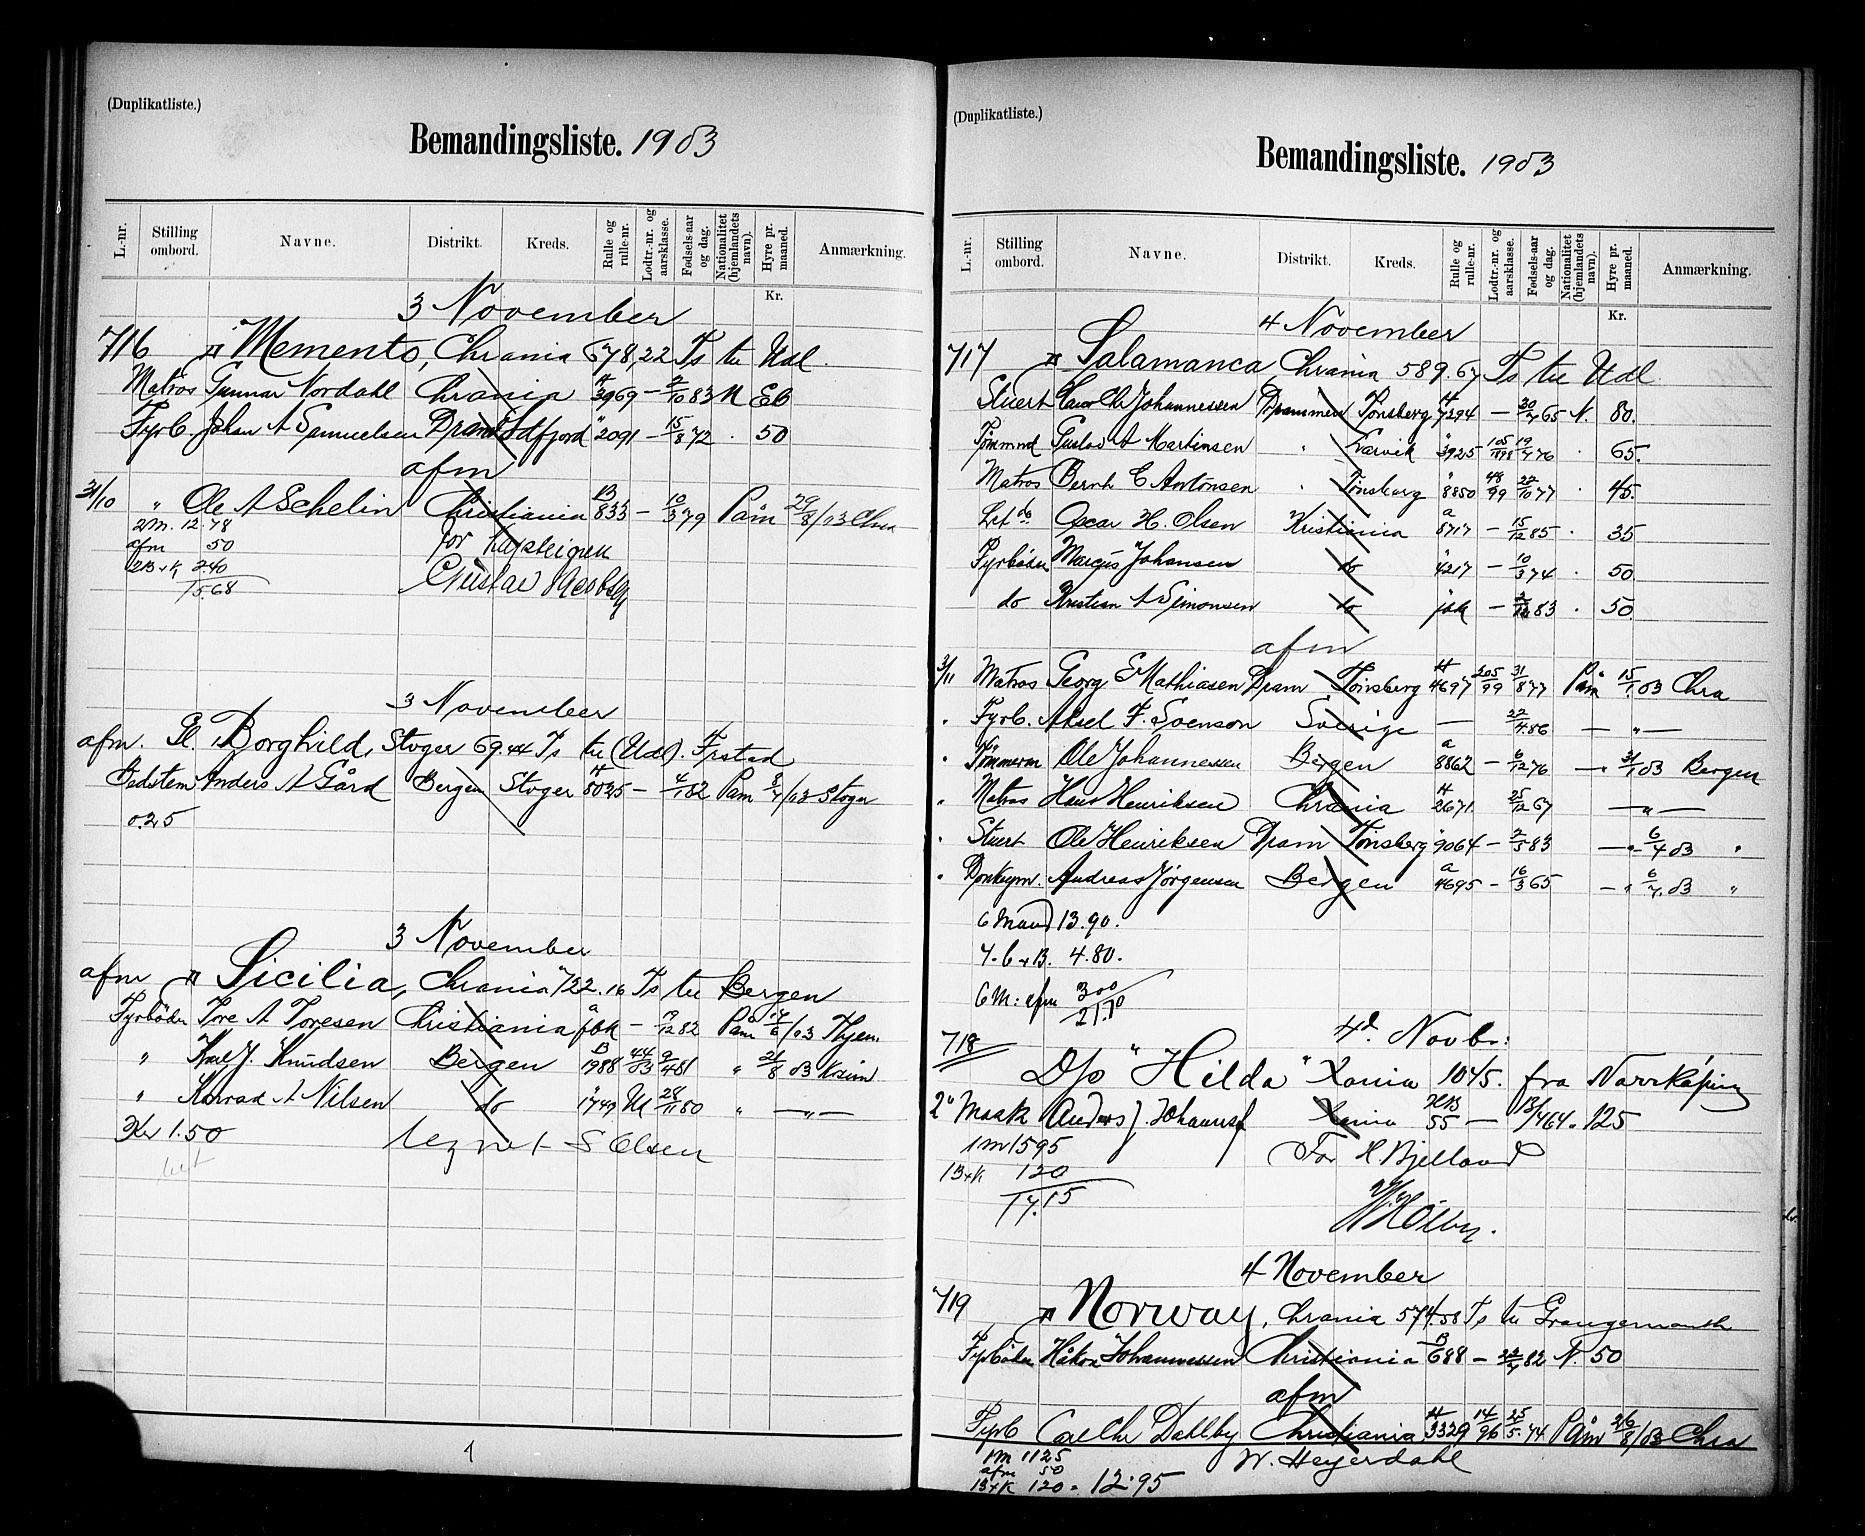 (Duplikatliste.)
Bemandingsliste. 1903
L.-nr. Stilling ombord. Navne. Distrikt. Kreds. Rulle og rulle-nr. Lodtr.-nr. og aarsklasse. Fødsels-aar og dag. Nationalitet (hjemlandets navn). Hyre pr. maaned. Anmærkning.
Kr.
3 November
716 " Memento, Chrania 678,22 Ts til Udl.
Matros Gunnar Nordahl Chrania 3969 — 2/10 83 N
Fyrb. Johan A Samuelsen Dram 2091 — 15/8 72 . 50
afm
31/10 " Ole A Schelin Christiania B 833 — 10/3 79 Påm 29/8/03 Chra
2 m. 12.78
afm 50
2B+K 2.40
15.68
for kapteinen
Gustav Jacobsen
3 November
afm. Sl. Borghild, Stager 69.44 Ts til (Udl). Frstad
Bedstem Anders A Gård Bergen 8025 — 4/1 82 Påm
0.25
3 November
afm " Sicilia, Chrania 722.16 Ts til Bergen
Fyrböder Tore A Toresen Christiania jak — 19/12 82 Påm 17/6/03
" Karl J. Knudsen Bergen B 1988 44/03 9/4 81 " 21/8 03
" Konrad A Nilsen do 1749 M 28/11 80 " — " —
3 Kr 1.50
tegnet S Olsen
1
(Duplikatliste.)
Bemandingsliste. 1903
L.-nr. Stilling ombord. Navne. Distrikt. Kreds. Rulle og rulle-nr. Lodtr.-nr. og aarsklasse. Fødsels-aar og dag. Nationalitet (hjemlandets navn). Hyre pr. maaned. Anmærkning.
Kr.
4 November
717 " Salamanca Chrania 589.67 Ts til Udl.
Stuert Chr Johannessen Drammen Tønsberg 7294 — 30/7 65 N. 80.
Tømmrmd Gustav A Martinsen " Larvik 3925 105/1898 19/7 76 . 65.
Matros Bernh C Antonsen . Tønsberg 8850 48/99 22/10 77 . 45.
Let do Oscar H. Olsen Kristiania a 8717 — 15/12 85 . 35
Fyrböder Marcus Johansen do 4217 — 10/3 74 . 50
do Kristian A Simonsen do jak — 83 . 50.
afm
3/11 Matros Georg E Mathiasen Dram Tönsberg 4697 205/99 31/8 77 Påm 15/1 03 Chra
. Fyrb. Aksel F. Svenson Sverige — 22/4 86 — " —
" Tømmerm Ole Johannessen Bergen a 8862 — 6/12 76 — " 31/1 03 Bergen
" Matros Hans Henriksen Chrania 2671 25/12 67 — " —
" Stuert Ole Henriksen Dram Tönsberg 9064 — 2/5 83 — " 6/4 03 "
" Donkeym. Andreas Jörgensen Bergen a 4695 — 16/3 65 — " 6/7 03 "
6 Mand 13.90.
7. C+B. 4.80.
6 M: afm 300
21.70
718 4d. Novbr:
D/s "Hilda" Xania 1045. fra Norrköping
2" Mask Anders J. Johannsf Xania 55 — 13/4 64 . 125
1 m 15 95
1 B+K 120
17.15
For H. Bjelland
4 November
719 " Norway, Chrania 574.58 Ts til Grangemonth
Fyrböder Håkon Johannessen Christiania B 688 — 22/7 82 N. 50
afm
Fyrb Carl Chr Dahlby Christiania 3329 14/96 25/5 74 Påm 26/8/03 Chra
1 m 11 25
afm 50
1B+K 120 = 12.95
W. Heyerdahl